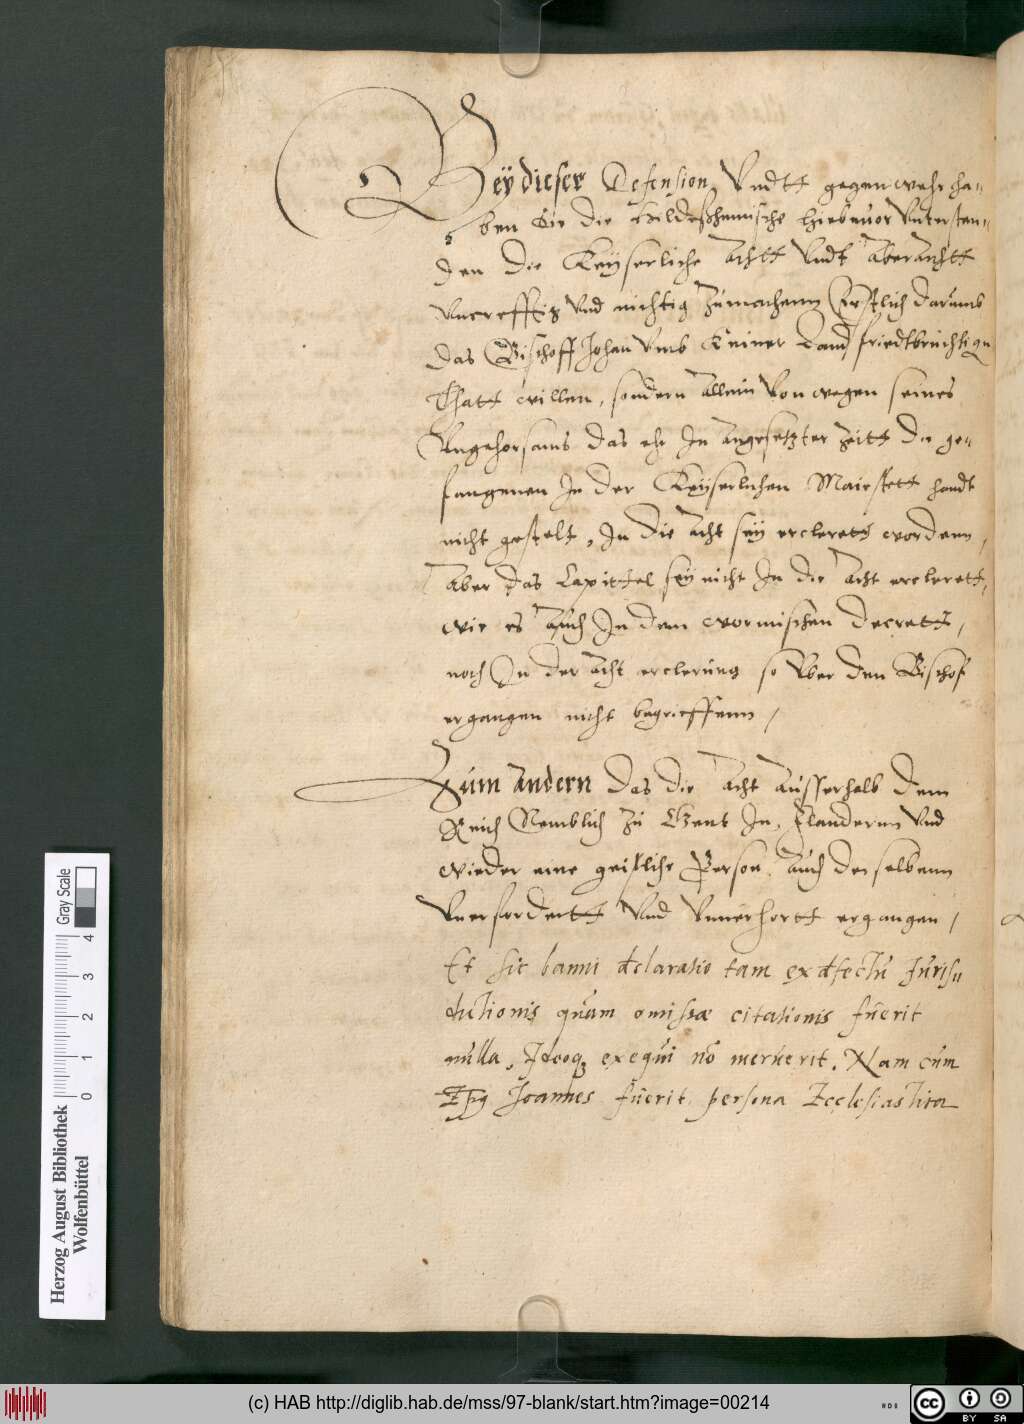 Beÿ dieser Defension Vndtt gegenwehr ha-
ben Sie die Hildeßhemische hiebeuor Vnterstan-
den die Keÿserliche Achtt Vndt AberAchtt
Vncrefftig Vnd nichtig Zumachenn Erstlich darumb
das Bischoff Johan Vmb Keiner Landfriedtbruchtigen
Thatt willen, sondern Allein Von wegen seines
Vngehorsams das ehr In Angesetzter Zeitt die ge-
fangenen In der Keÿserlichen Maiestett handt
nicht gestelt, In die Acht seÿ erclerett wordenn,
Aber das Capittel seÿ nicht In die Acht erclerett,
wie es Auch In dem wormischen decrett,
noch In der Acht erclerung so Vber den Bischof
ergangen nicht begrieffenn,
Zum Andern das die Acht Ausserhalb dem
Reich Nemblich Zu Gent In Flandernn Vnd
wieder eine geistliche Person, Auch derselbenn
Vnerfordertt Vnd Vnuerhortt ergangen,
Et sic banni declaratio tam ex defectu Jurisdi
ctionis quam omissæ citationis fuerit
nulla, Ideoq, exequi nō meruerit. Nam cum
Epq Joannes fuerit persona Ecclesiastica
Herzog August Bibliothek
Wolfenbüttel
0 1 2 3 4
Gray Scale
(c) HAB http://diglib.hab.de/mss/97-blank/start.htm?image=00214
cc BY SA